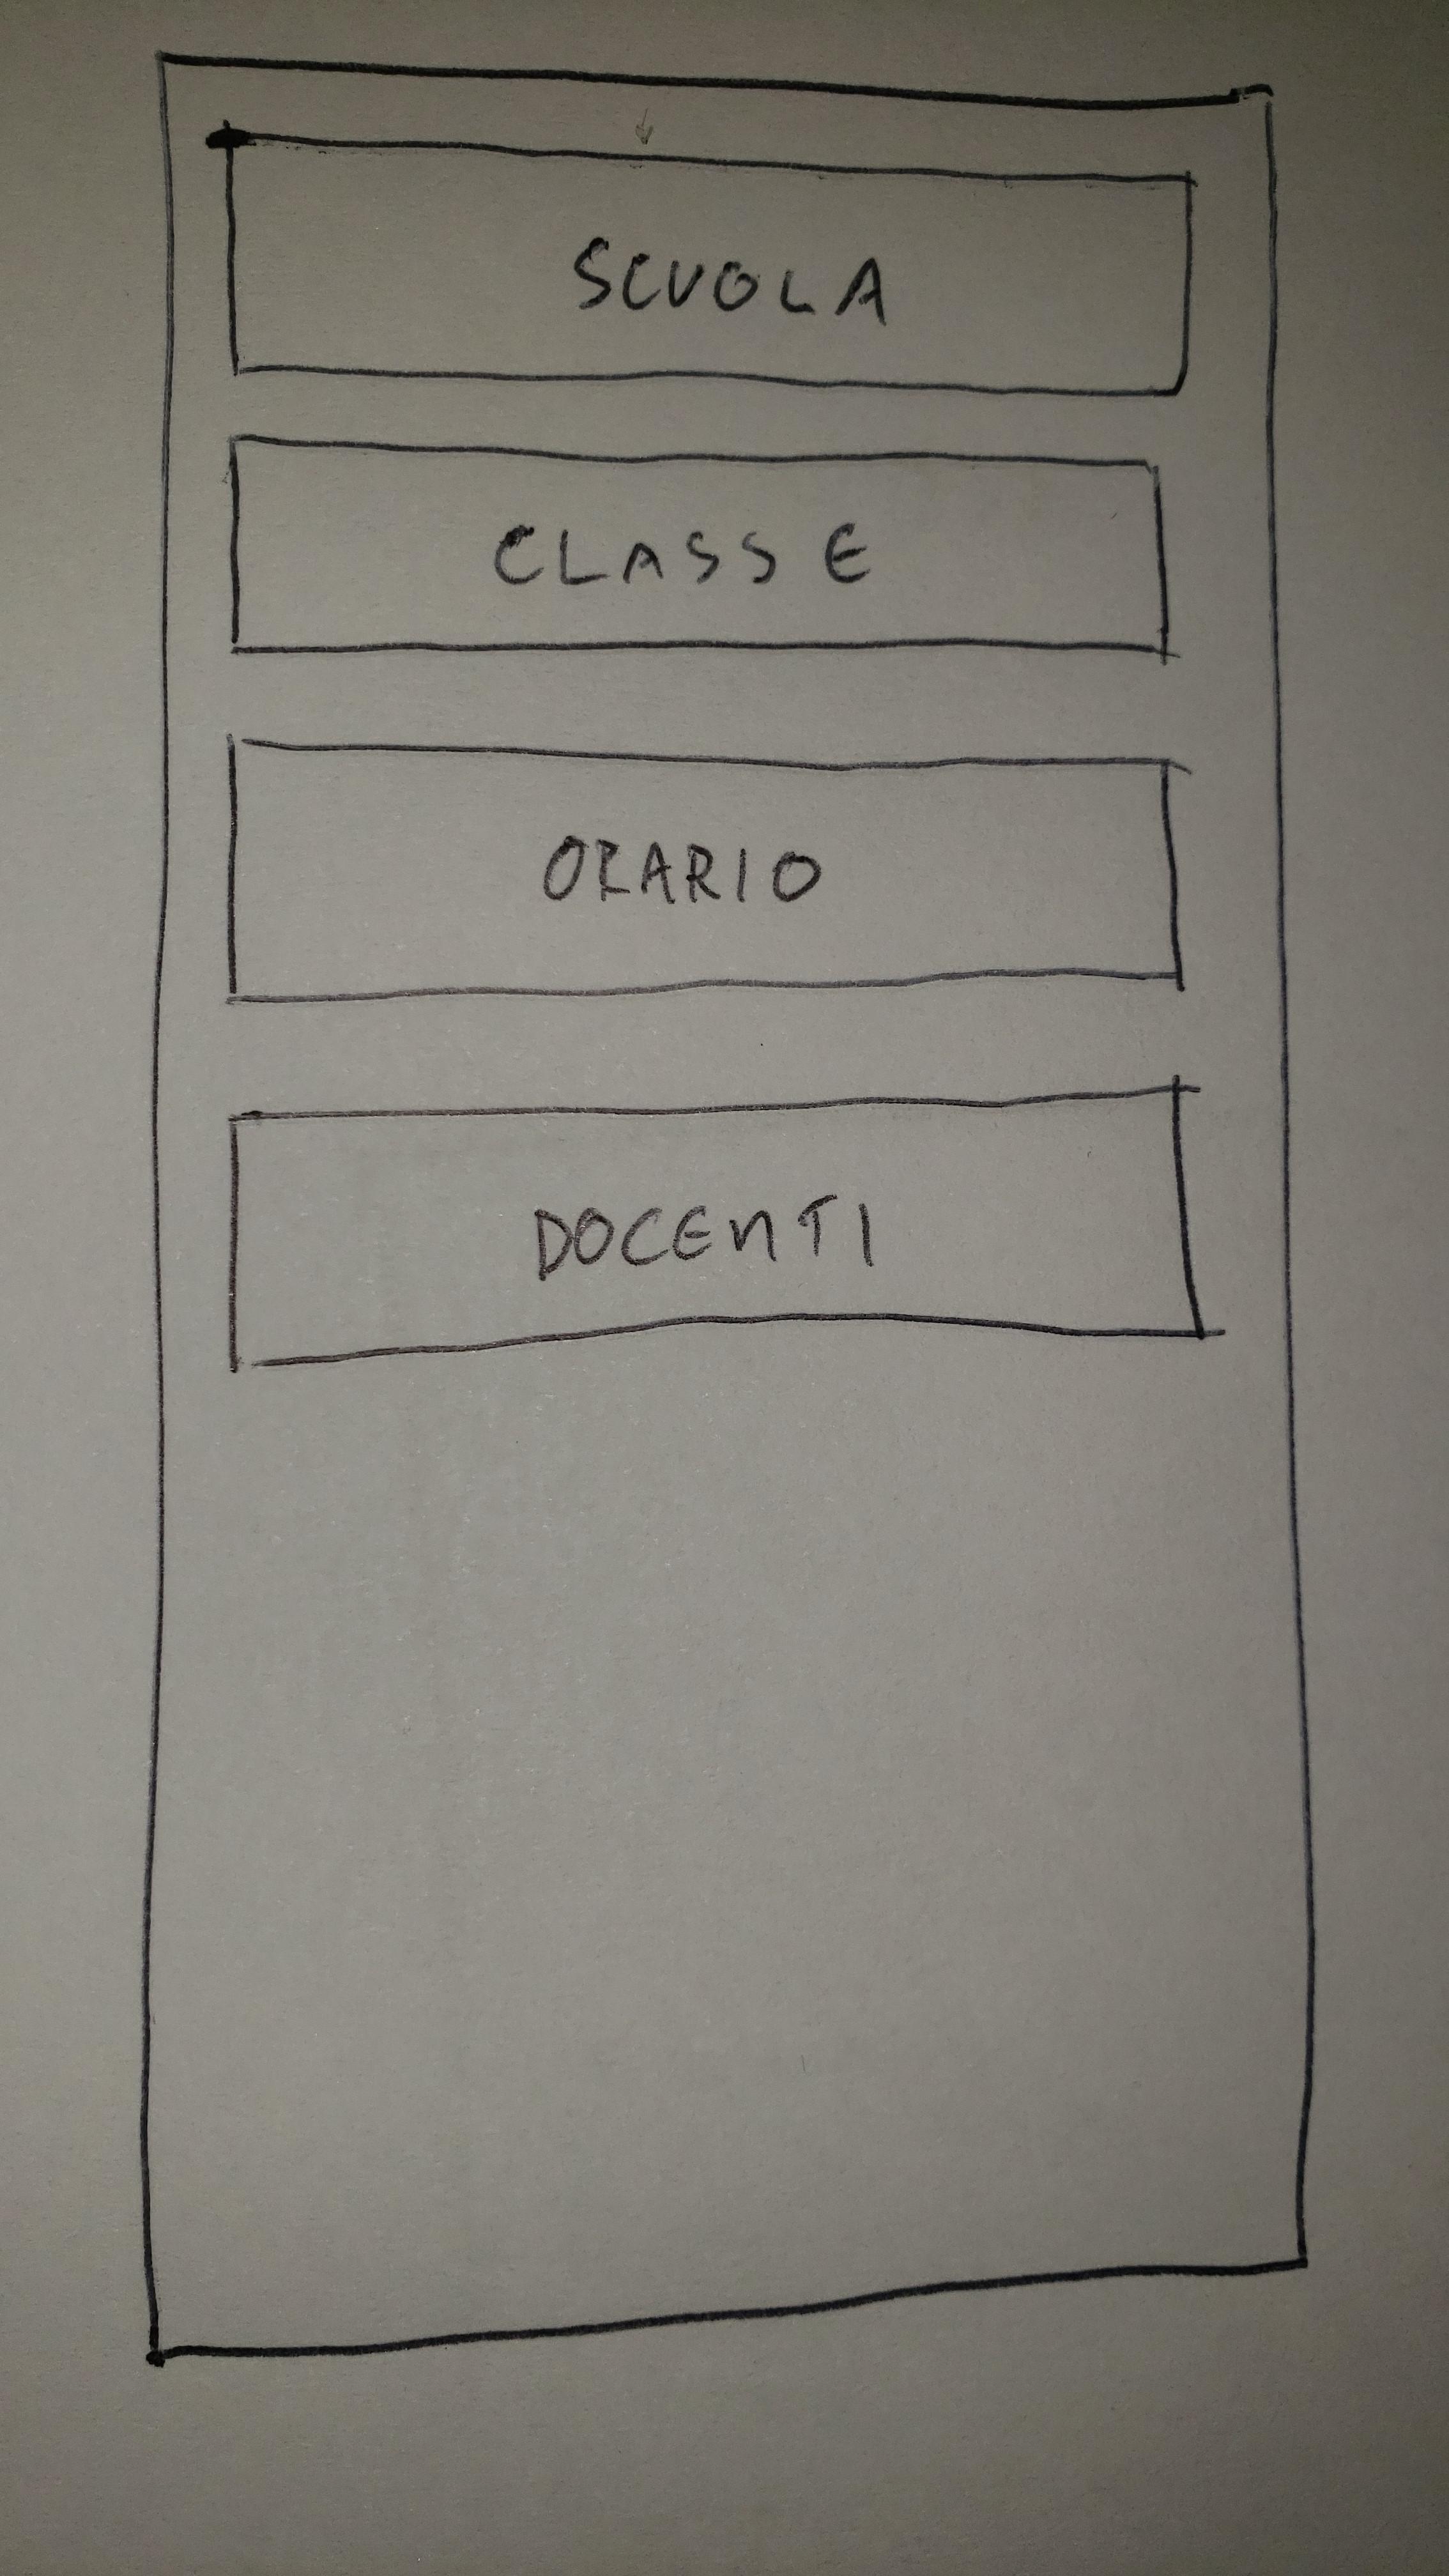 SCUOLA
CLASSE
ORARIO
DOCENTI